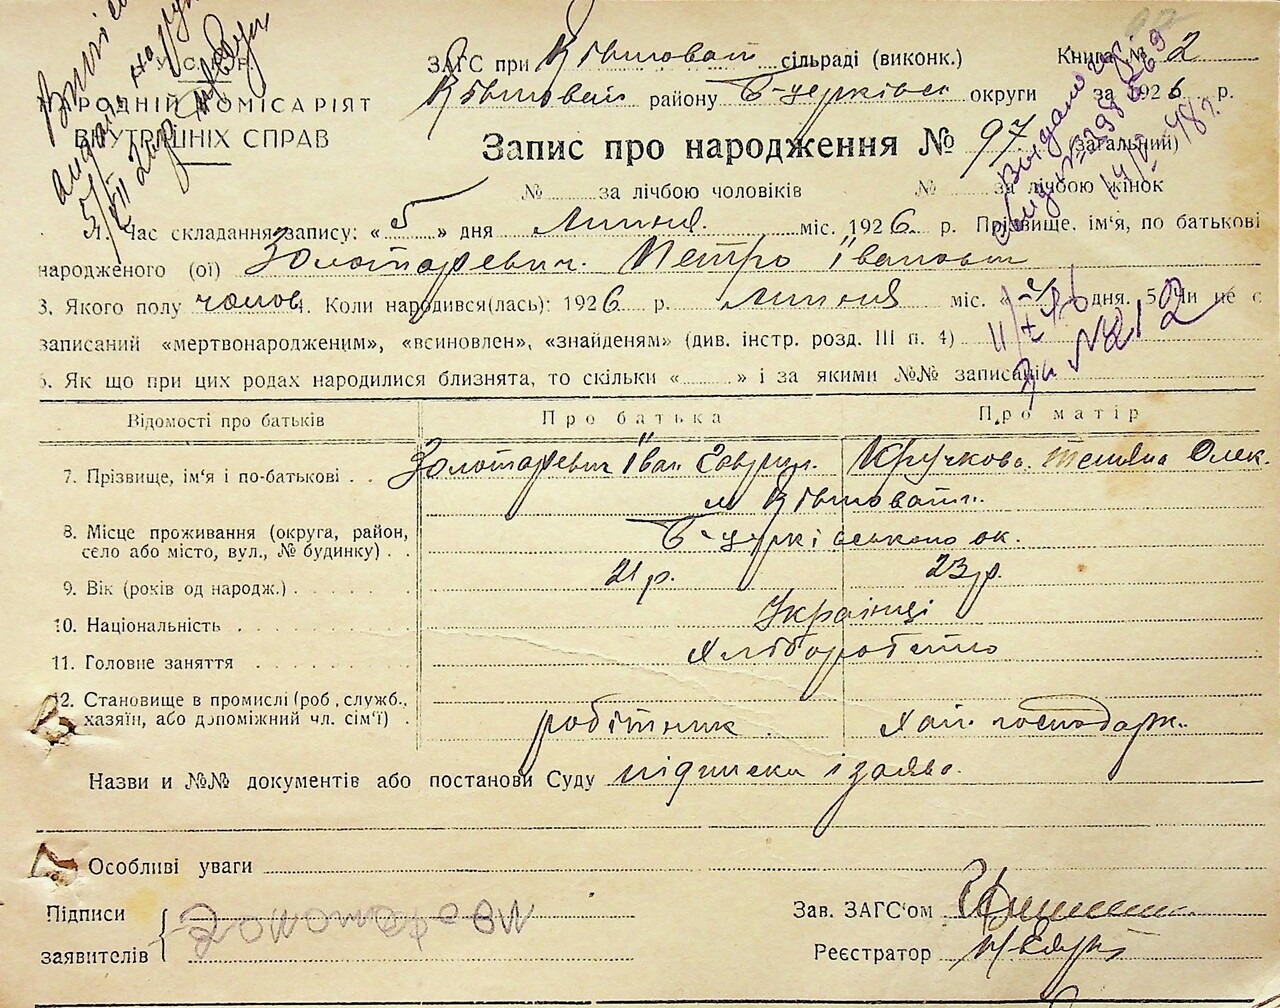 У.С.Р.Р.
НАРОДНІЙ КОМІСАРІЯТ
ВНУТРІШНІХ СПРАВ
ЗАГС при Ківшоват сільраді (виконк.) Книга № 2
Ківшоват району Б-церківськ округи за 1926 р.
Запис про народження № 97 (загальний)
№ за лічбою чоловіків № за лічбою жінок
1. Час складання запису: «5» дня липня міс. 1926 р. Прізвище, ім'я, по батькові
народженого (ої) Золотаревич Петро Іванович
3. Якого полу чолов. 4. Коли народився(лась): 1926 р. липня міс. « » дня. 5. Чи не є
записаний «мертвонародженим», «всиновлен», «знайденям» (див. інстр. розд. III п. 4)
6. Як що при цих родах народилися близнята, то скільки « » і за якими №№ записані
Видано
14/ 48 г.
11/X 46
За № 212
Відомості про батьків Про батька Про матір
7. Прізвище, ім'я і по-батькові Золотаревич Іван Гаврил. Кручкова Тетяна Олек.
м Ківшоват.
8. Місце проживання (округа, район,
село або місто, вул., № будинку) Б-церківського ок.
9. Вік (років од народж.) 21 р. 23 р.
10. Національність Українці
11. Головне заняття Хліборобство
12. Становище в промислі (роб., служб.,
хазяїн, або допоміжний чл. сім'ї) робітник хат. господарж.
Назви и №№ документів або постанови Суду підписка і заява.
Особливі уваги
Підписи
заявителів
Зав. ЗАГС'ом
Реєстратор